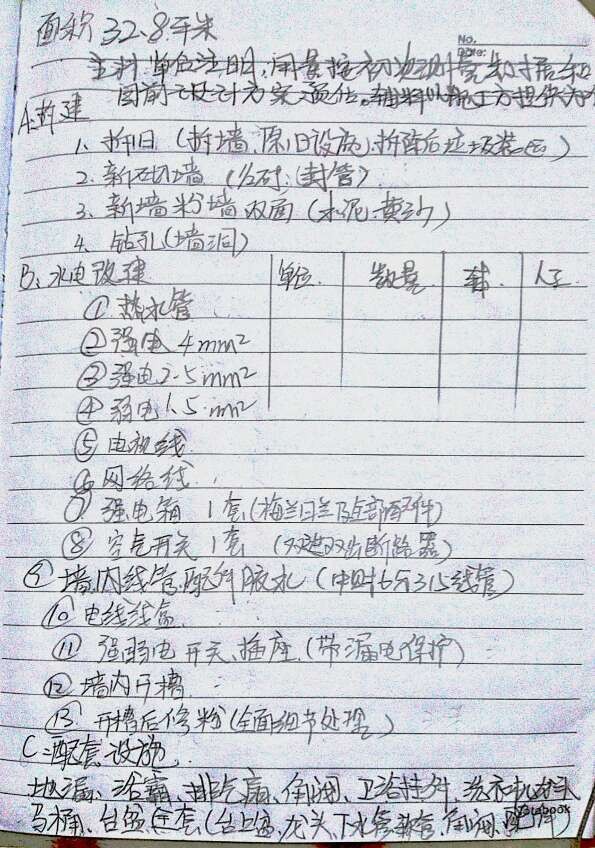 面积 32.8平米
No.
Date:
主料单位注明,用量按初
目前设计方案预估,辅料以施工方提供为
A:拆建
1、拆旧(拆墙、原旧设施,拆除后垃圾装运)
2、新砌墙(轻砖;封管)
3、新墙粉墙双面(水泥、黄沙)
4、钻孔(墙洞)
B:水电改建 单位 数量 人工
① 热水管
② 强电 4mm²
③ 强电2.5mm²
④ 弱电1.5mm²
⑤ 电视线
⑥ 网络线
⑦ 强电箱 1套(梅兰日兰及全部配件)
⑧ 空气开关 1套 (双进双出断路器)
⑨ 墙内线管、配件(中财6分315线管)
⑩ 电线线盒
⑪ 强弱电开关、插座(带漏电保护)
⑫ 墙内开槽
⑬ 开槽后修粉(全面细节处理)
C:配套设施
地漏、浴霸、排气扇、角阀、卫浴挂件、洗衣机龙头
马桶、台盆全套(台上盆、龙头、下水管、软管、角阀、配件)